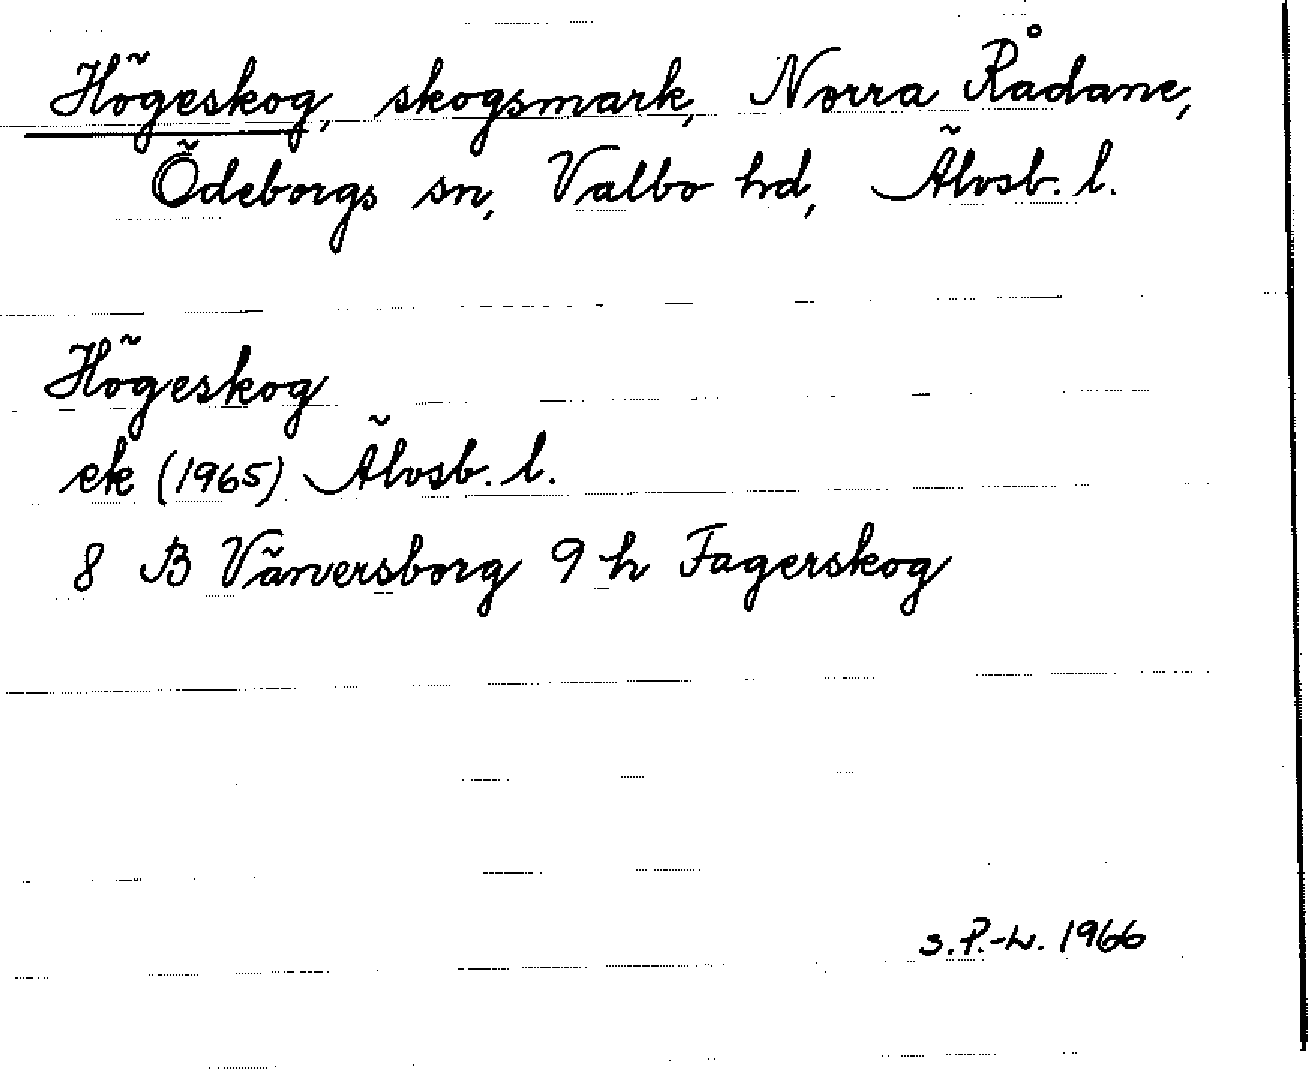 Högeskog, skogsmark, Norra Rådane,
Ödeborgs sn, Valbo hd, Älvsb. l.
Högeskog
ek (1965) Älvsb. l.
8 B Vänersborg 9 h Fagerskog
S.P.-L. 1966